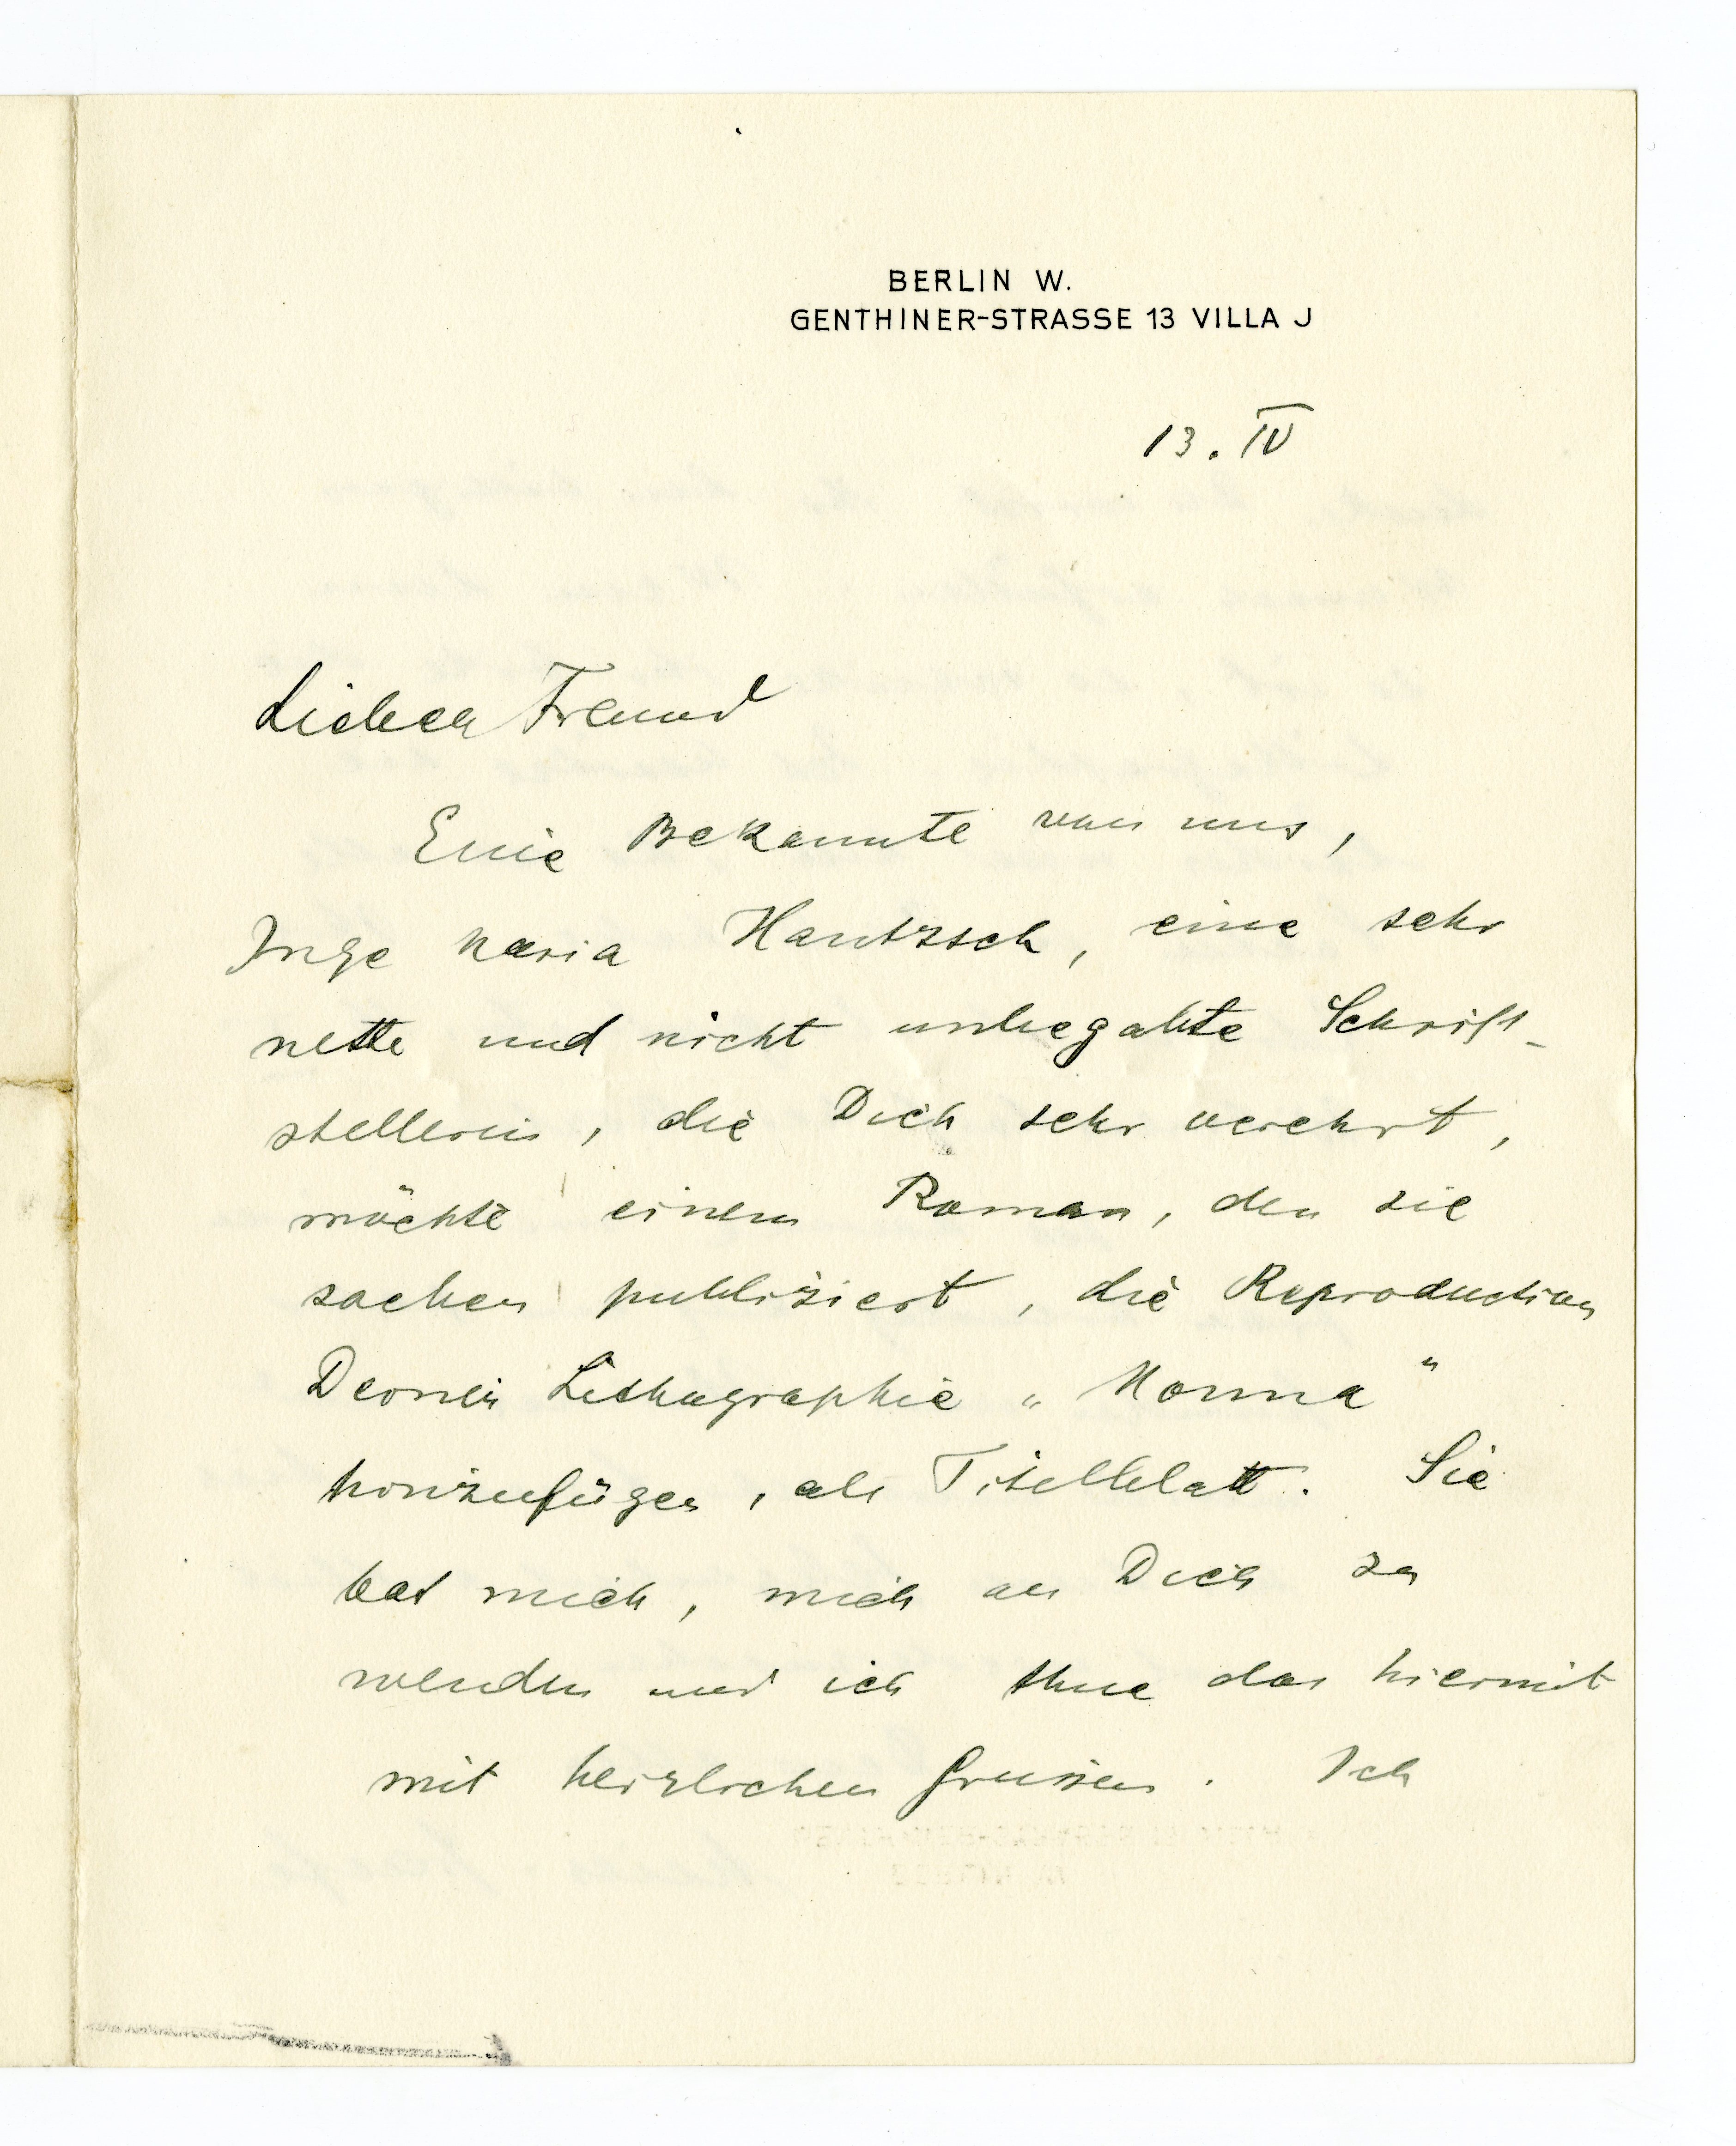 BERLIN W.
GENTHINER-STRASSE 13 VILLA J
13. IV
Lieber Freund
Eine Bekannte von uns,
Inge Maria Hantzsch, eine sehr
nette und nicht unbegabte Schrift-
stellerin, die Dich sehr verehrt,
möchte einem Roman, den sie
soeben publiziert, die Reproduction
Deiner Lithographie „Monna"
hinzufügen, als Titelblatt. Sie
bat mich, mich an Dich zu
wenden und ich thue das hiermit
mit herzlichen Grüssen. Ich